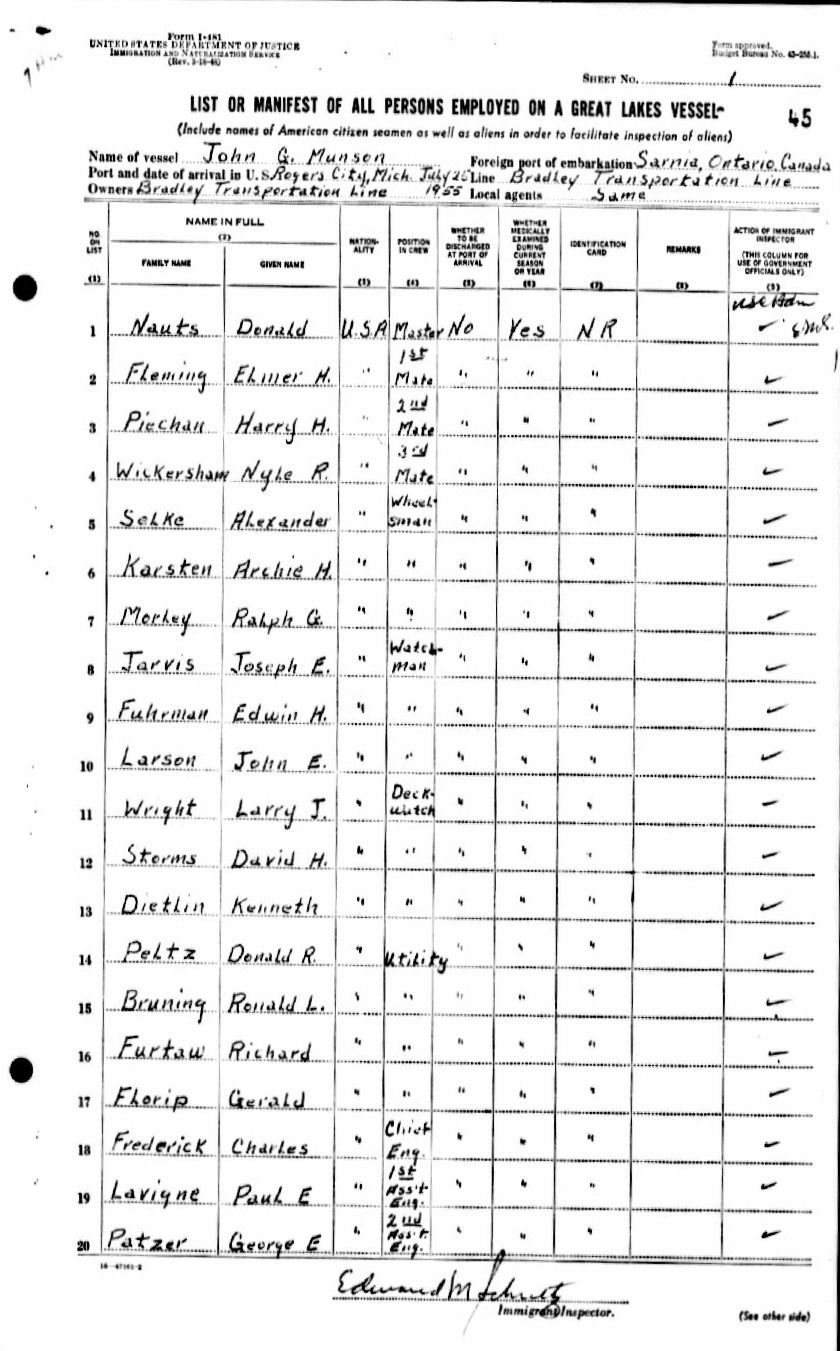 Form I-481
UNITED STATES DEPARTMENT OF JUSTICE
IMMIGRATION AND NATURALIZATION SERVICE
(Rev. 3-18-48)
Form approved.
Budget Bureau No. 43-
SHEET No. 1
LIST OR MANIFEST OF ALL PERSONS EMPLOYED ON A GREAT LAKES VESSEL
45
(Include names of American citizen seamen as well as aliens in order to facilitate inspection of aliens)
Name of vessel John G. Munson Foreign port of embarkation Sarnia, Ontario, Canada
Port and date of arrival in U.S. Rogers City, Mich. July 25 Line Bradley Transportation Line
Owners Bradley Transportation Line 1955 Local agents Same
NO. ON LIST (1) NAME IN FULL (2) FAMILY NAME GIVEN NAME NATION-ALITY (3) POSITION IN CREW (4) WHETHER TO BE DISCHARGED AT PORT OF ARRIVAL (5) WHETHER MEDICALLY EXAMINED DURING CURRENT SEASON OR YEAR (6) IDENTIFICATION CARD (7) REMARKS (8) ACTION OF IMMIGRANT INSPECTOR (THIS COLUMN FOR USE OF GOVERNMENT OFFICIALS ONLY) (9)
1 Nauts Donald U.S.A Master No Yes NR ✓
2 Fleming Elmer H. " 1st Mate " " " ✓
3 Piechan Harry H. " 2nd Mate " " " ✓
4 Wickersham Nyle R. " 3rd Mate " " " ✓
5 Selke Alexander " Wheel-sman " " " ✓
6 Karsten Archie H. " " " " " ✓
7 Morley Ralph G. " " " " " ✓
8 Jarvis Joseph E. " Watch-man " " " ✓
9 Fuhrman Edwin H. " " " " " ✓
10 Larson John E. " " " " " ✓
11 Wright Larry J. " Deck-watch " " " ✓
12 Storms David H. " " " " " ✓
13 Dietlin Kenneth " " " " " ✓
14 Peltz Donald R. " Utility " " " ✓
15 Bruning Ronald L. " " " " " ✓
16 Furtaw Richard " " " " " ✓
17 Florip Gerald " " " " " ✓
18 Frederick Charles " Chief Eng. " " " ✓
19 Lavigne Paul E " 1st Ass't Eng. " " " ✓
20 Patzer George E " 2nd Ass't. Eng. " " " ✓
Edward M Schultz
Immigrant Inspector.
(See other side)